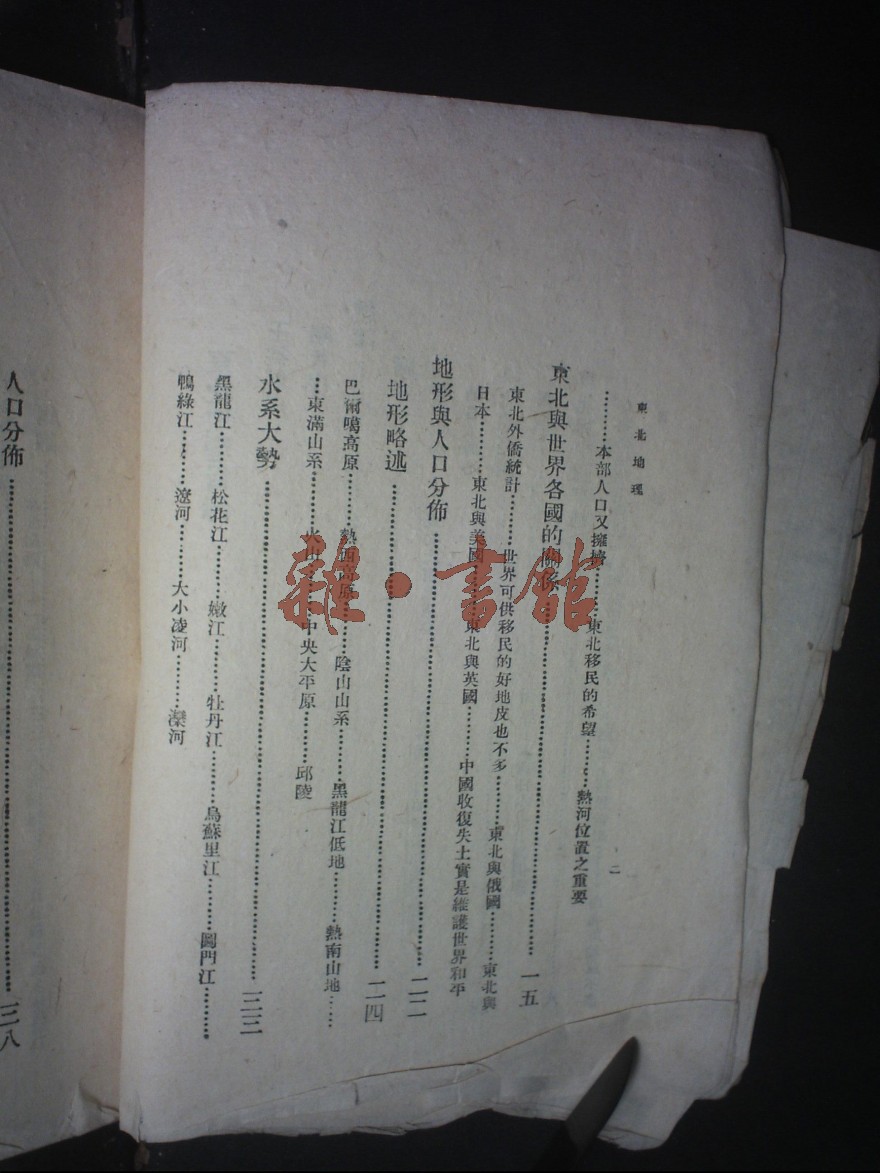 東北地理
二
………本部人口又擁擠………東北移民的希望………熱河位置之重要
東北與世界各國的關係………一五
東北外僑統計………世界可供移民的好地皮也不多………東北與俄國………東北與
日本………東北與美國………東北與英國………中國收復失土實是維護世界和平
地形與人口分佈………二二
地形略述………二四
巴爾噶高原………熱西高原………陰山山系………黑龍江低地………熱南山地……
…東滿山系………火山………中央大平原………邱陵
水系大勢………三三
黑龍江………松花江………嫩江………牡丹江………烏蘇里江………圖門江………
鴨綠江………遼河………大小凌河………灤河
人口分佈………三八
雜·書館